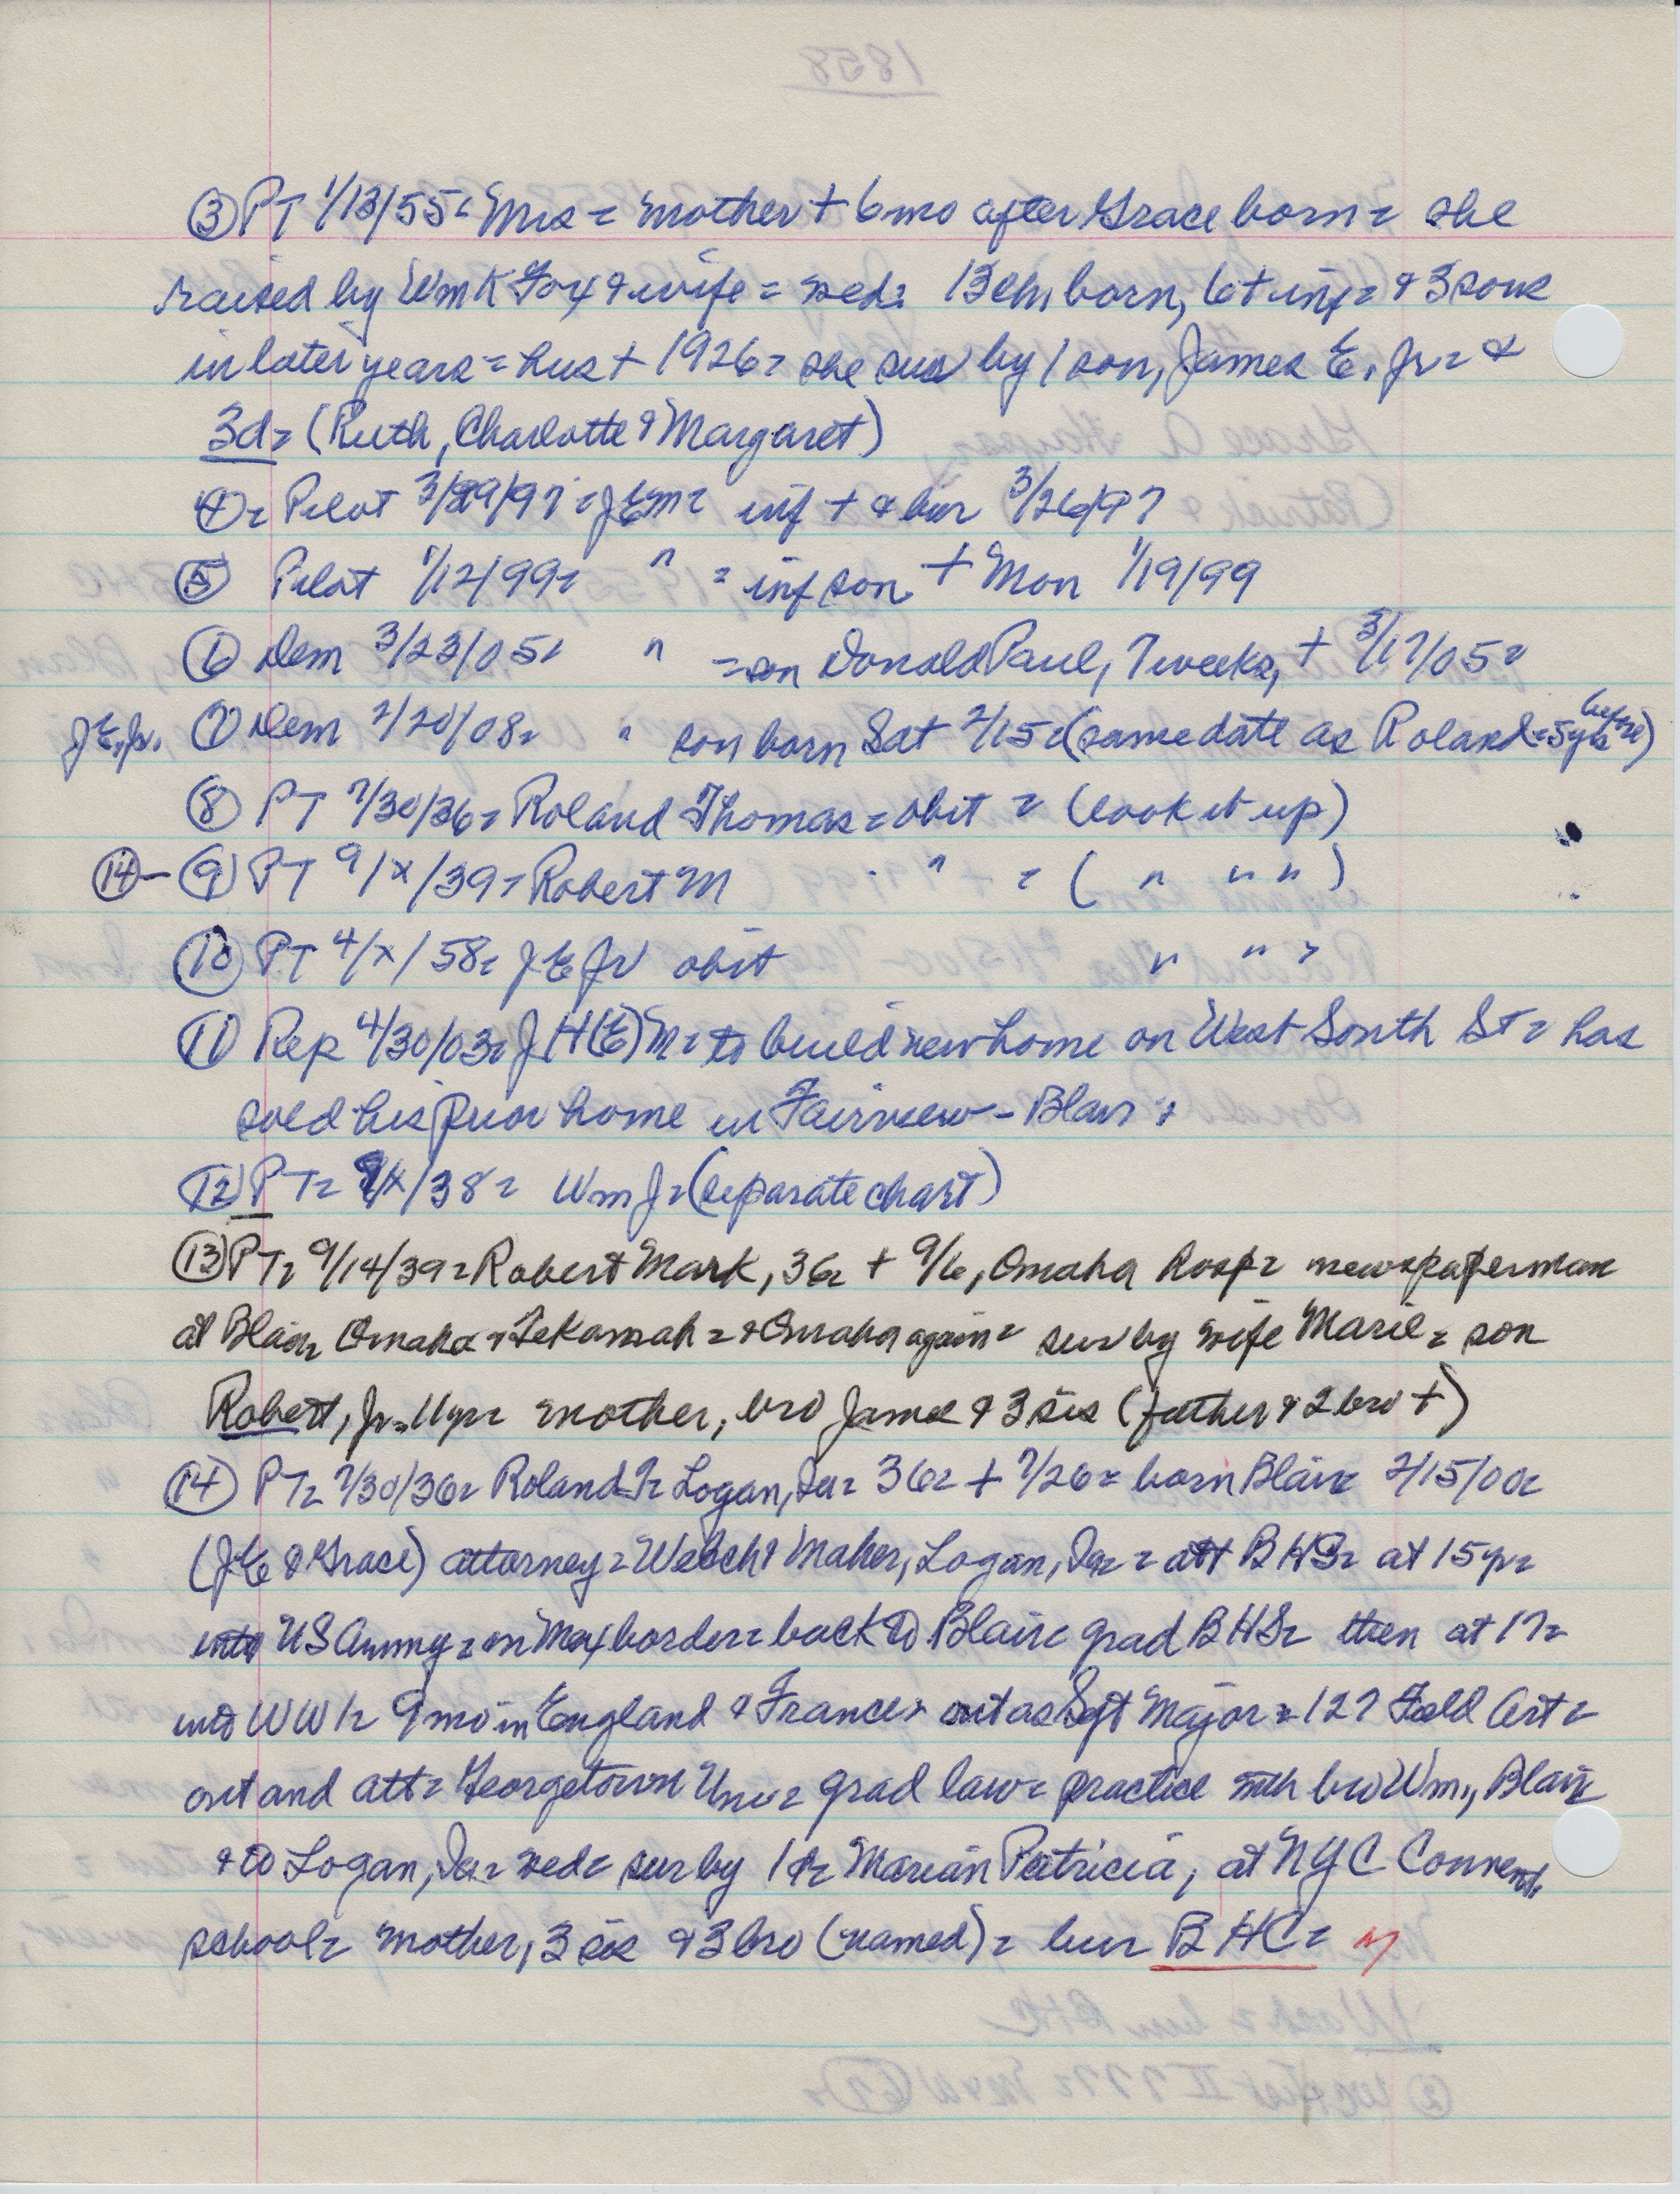 ③ PT 1/13/55= Mrs = mother + 6mo after Grace born = she
raised by Wm K Fox & wife = wed= 13 ch born, 6 + inf= & 3 sons
in later years = hus + 1926= she sur by 1 son, James E, Jr= &
3d= (Ruth, Charlotte & Margaret)
④= Pilot 3/29/97 = JEM= inf + & bur 3/26/97
⑤ Pilot 1/12/99= " = inf son + Mon 1/19/99
⑥ Dem 3/23/05= " = son Donald Paul, 7 weeks, + 3/17/05=
J E, Jr. ⑦ Dem 2/20/08= " son born Sat 2/15= (same date as Roland=5yrs before)
⑧ PT 7/30/36= Roland Thomas = obit = (look it up)
⑭ - ⑨ PT 9/x/39= Robert M " = ( " " " )
⑩ PT 4/x/58= J E Jr obit " " "
⑪ Rep 4/30/03= J H(E) M= to build new home on West South St= has
sold his prior home in Fairview - Blair =
⑫ PT= 9/x/38= Wm J= (separate chart)
⑬ PT= 9/14/39= Robert Mark, 36= + 9/6, Omaha hosp= newspaperman
at Blair, Omaha & Tekamah = & Omaha again = sur by wife Marie= son
Robert, Jr= 11yr= mother, bro James & 3 sis (father & 2 bro +)
⑭ PT= 7/30/36= Roland T= Logan, Ia= 36= + 7/26= born Blair= 2/15/00=
(JE & Grace) attorney= Welch & Maher, Logan, Ia= = att BHS= at 15yr=
into US Army= on Mex border= back to Blair= grad BHS= then at 17=
into WW1= 9 mo in England & France= out as Sgt Major = 127 Field Art=
out and att= Georgetown Univ= grad law= practice with bro Wm, Blair=
& to Logan, Ia= wed= sur by 1d= Marian Patricia, at NYC Convent
school= mother, 3 sis & 3 bro (named)= bur BHC=